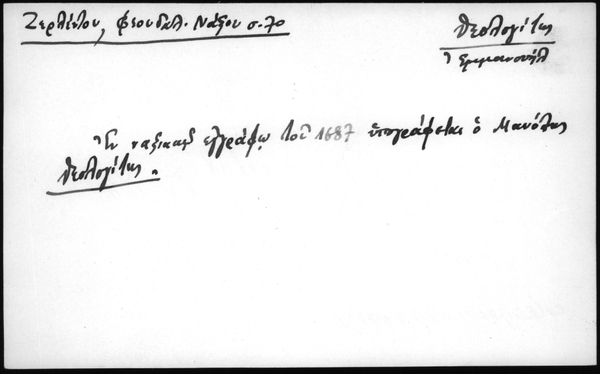 Ζερλέντου, Φεουδαλ. Νάξου σ. 70
Θεολογίτης
Ἐμμανουήλ
Ἐν ναξιακῷ ἐγγράφῳ τοῦ 1687 ὑπογράφεται ὁ Μανόλης
Θεολογίτης.